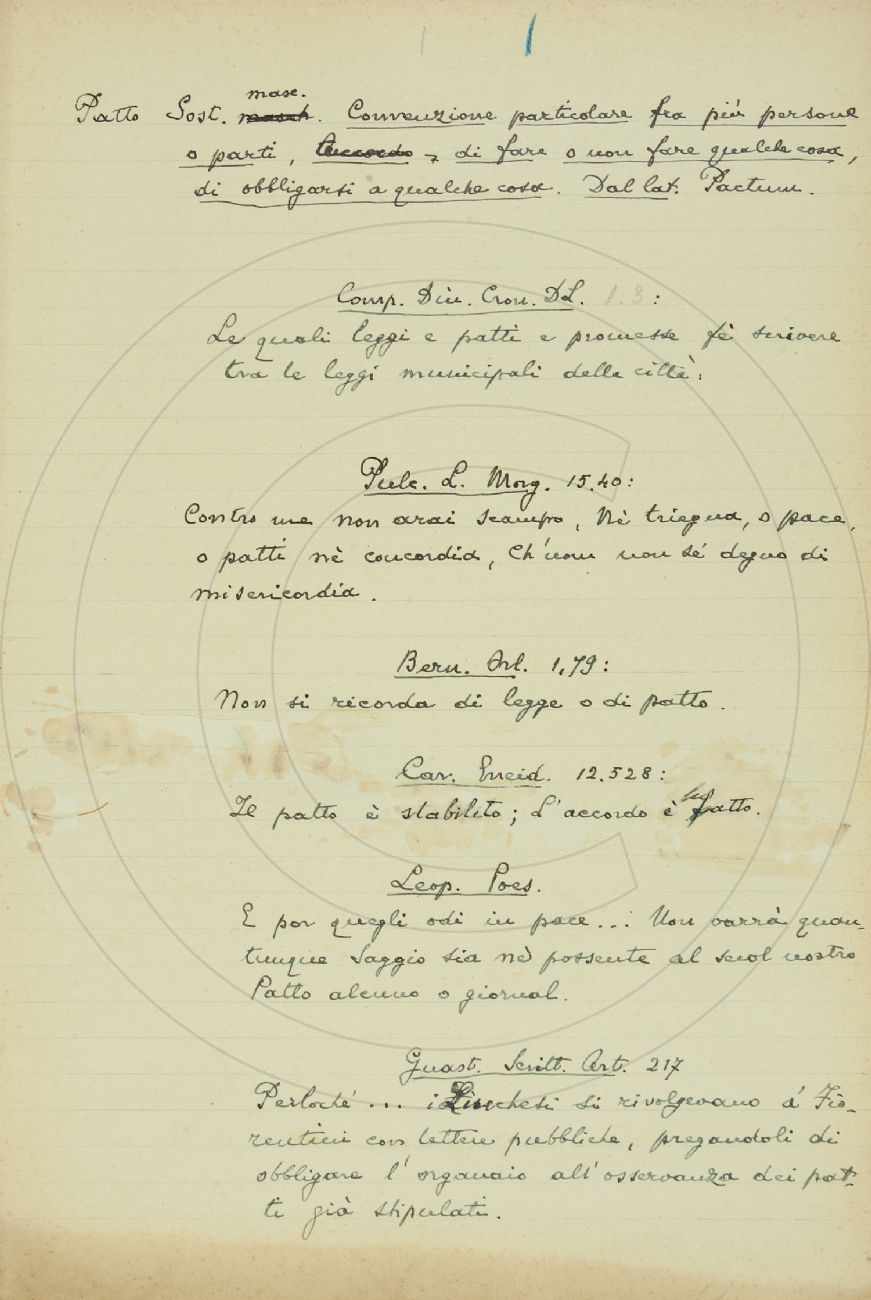 masc.
Patto Sost. masch. Convenzione particolare fra piú persone
o parti, Accordo, di fare o non fare qualche cosa,
di obbligarsi a qualche cosa. Dal lat. Pactum.
Comp. Din. Cron. DL. 1.3:
Le quali leggi e patti e promesse fè scrivere
tra le leggi municipali della città:
Pulc. L. Morg. 15.40:
Contro me non arai scampo, Nè triegua, o pace,
o patti nè concordia, Ch'uom non sé degno di
misericordia.
Bern. Orl. 1,79:
Non si ricorda di legge o di patto.
Car. Eneid. 12.528:
Il patto è stabilito; L'accordo è fatto.
Leop. Poes.
E por quegli odi in pace... Non varrà quan-
tunque Saggio sia nè possente al suol nostro
Patto alcuno o giornal.
Guast. Scritt. Art. 217
Perloché ... i Lucchesi si rivolgevano a' Fio-
rentini con lettere pubbliche, pregandoli di
obbligare l'organaio all'osservanza dei pat-
ti già stipulati.